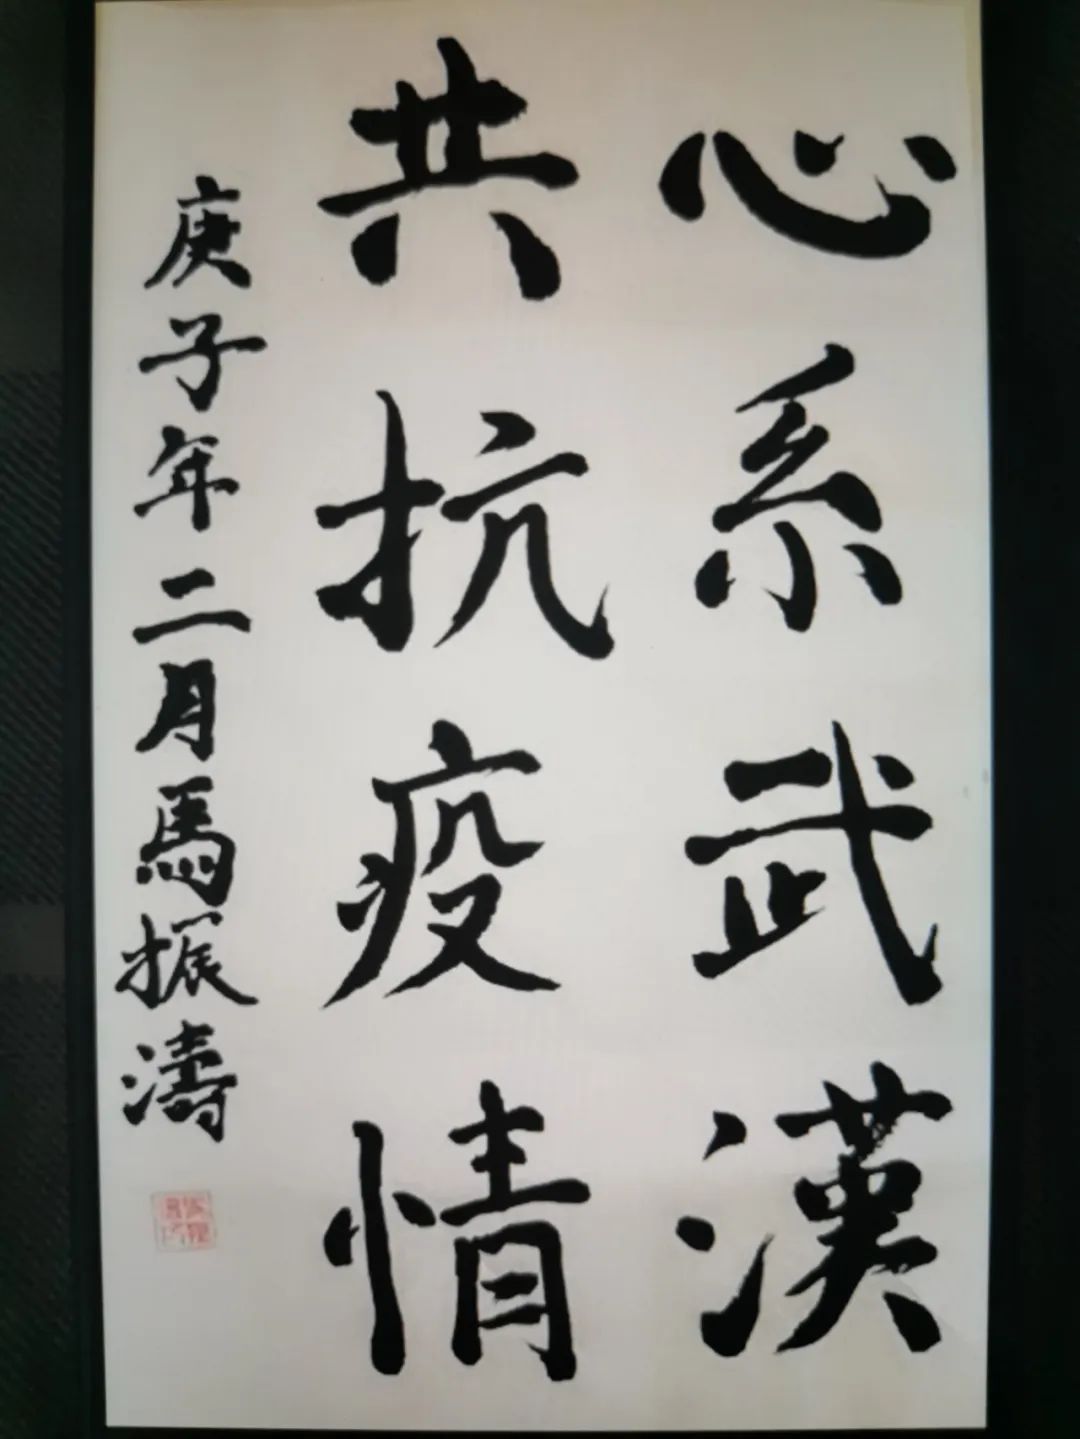 心系武漢
共抗疫情
庚子年二月馬振濤